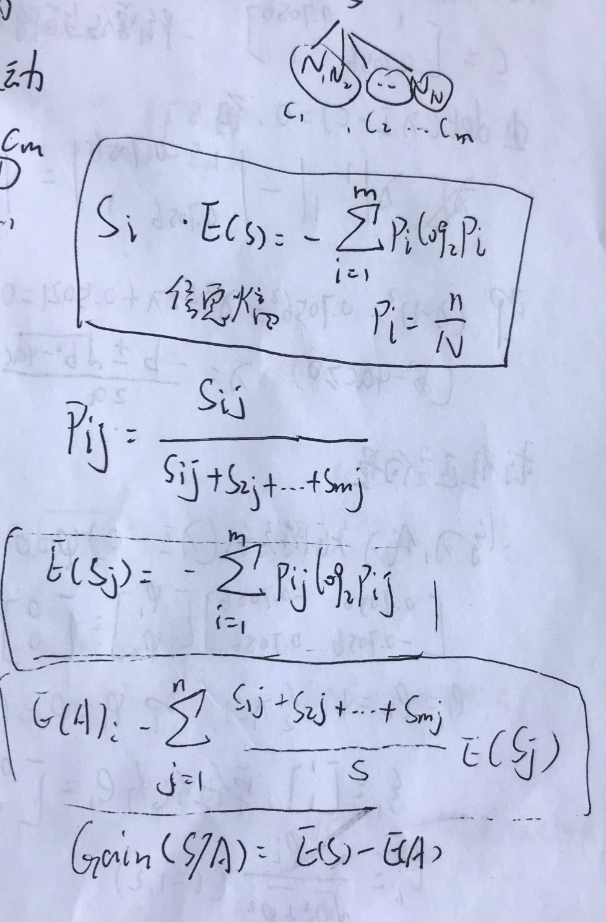 动
Cm
N1 N2 ... NN
C1 . C2 ... Cm
Si · E(S) = - ∑_{i=1}^{m} Pi log2 Pi
信息熵 Pi = n/N
Pij = Sij / (Sij + S2j + ... + Smj)
E(Sj) = - ∑_{i=1}^{m} Pij log2 Pij
E(A) = - ∑_{j=1}^{n} (S1j + S2j + ... + Smj)/S E(Sj)
Gain(S, A) = E(S) - E(A)